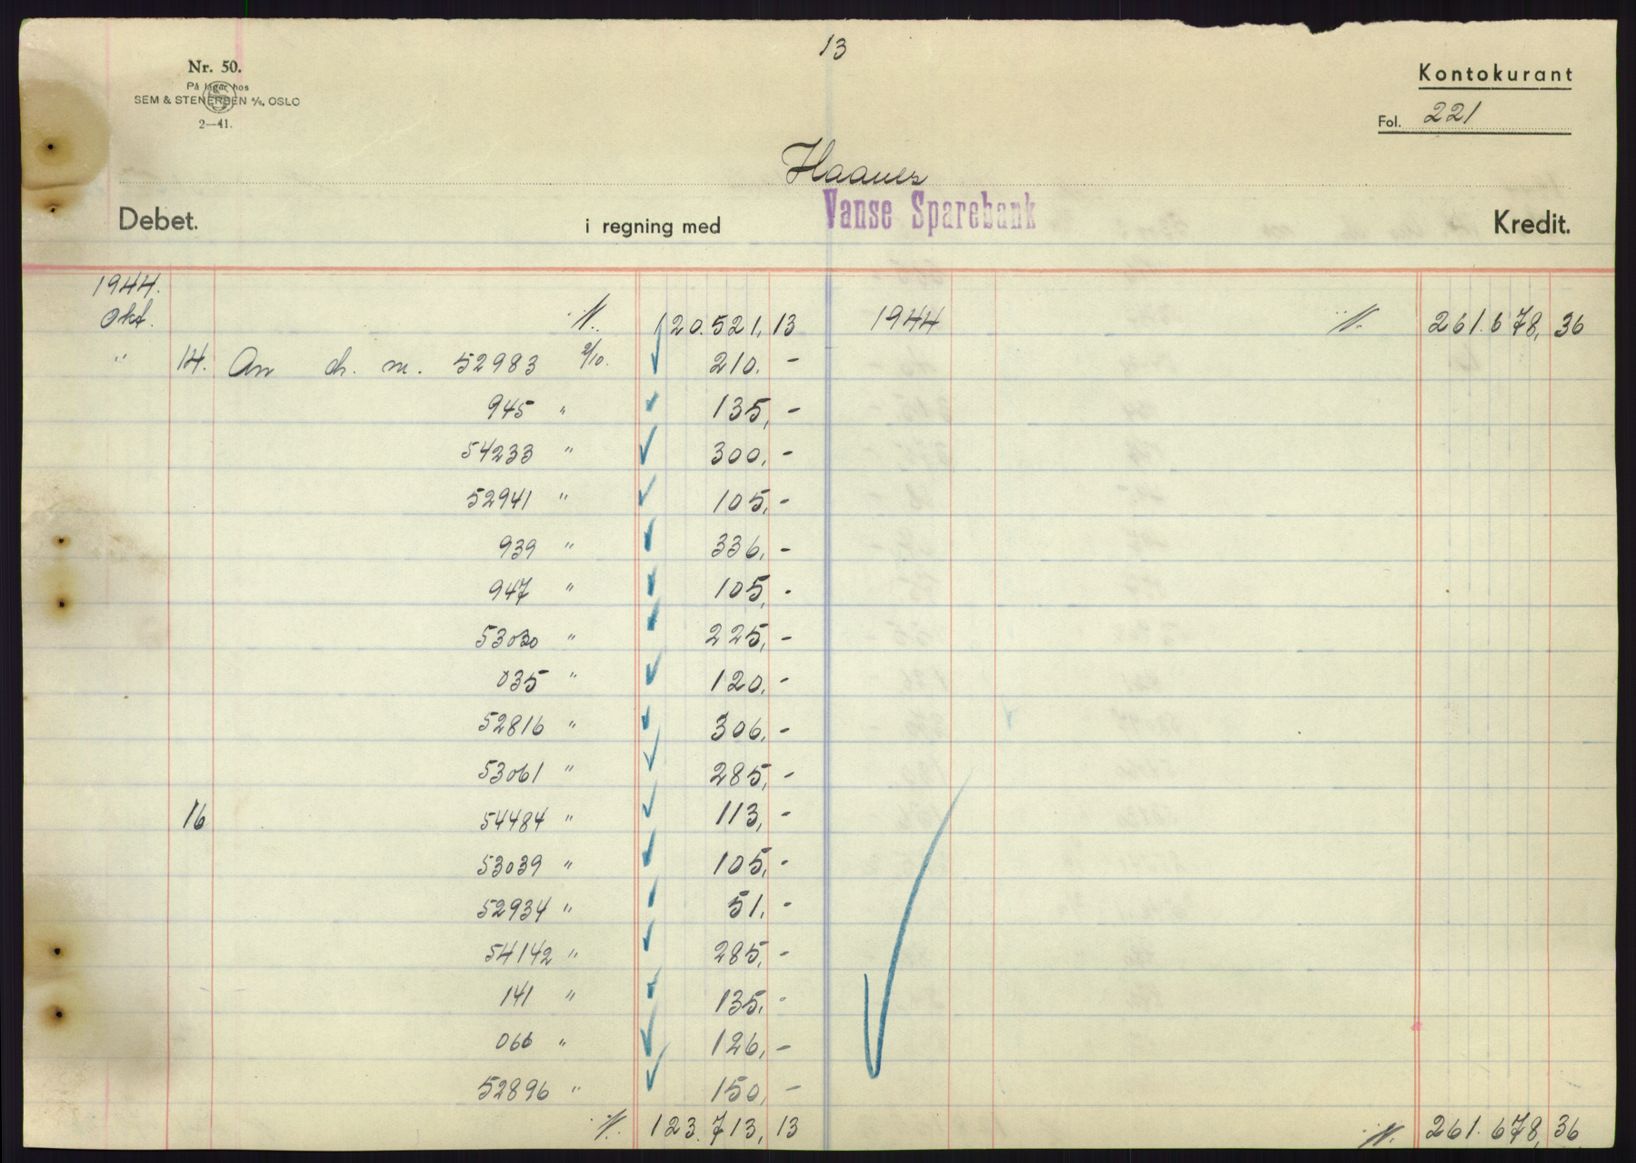 13
Nr. 50.
På lager hos
SEM & STENERSEN A/S, OSLO
2—41.
Kontokurant
Fol. 221
Haanes
Debet. i regning med Vanse Sparebank Kredit.
1944.
Okt. 120.521,13 1944 261.678,36
" 14. An ch. nr. 52983 2/10. 210.-
945 " 135,-
54233 " 300,-
52941 " 105,-
939 " 336,-
947 " 105,-
53030 " 225,-
035 " 120,-
52816 " 306,-
53061 " 285,-
16 54484 " 113,-
53039 " 105,-
52934 " 51,-
54142 " 285,-
141 " 135,-
066 " 126,-
52896 " 150,-
123.713,13 261.678,36